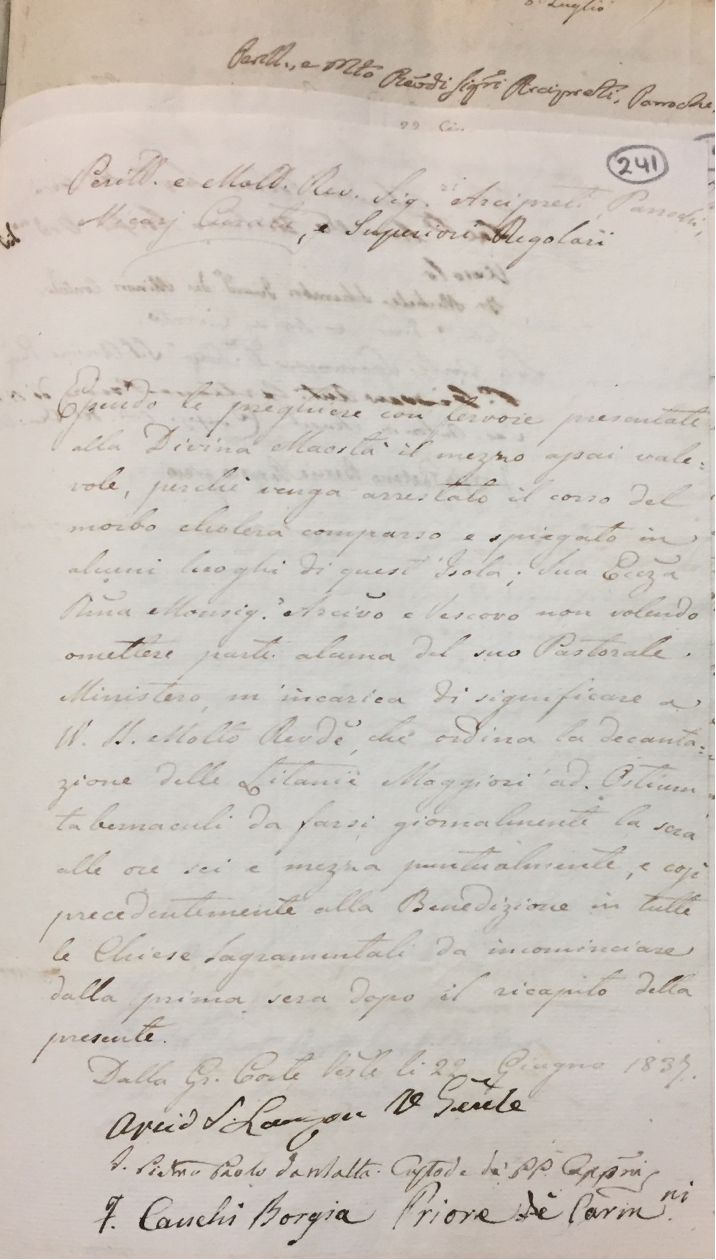 6 Luglio
Perill. e Mto Revdi Sigri Arcipreti, Parrochi,
241
Perill. e Molt. Rev. Sig.ri Arcipreti, Parrochi,
Curati, e Superiori Regolari
Essendo le preghiere con fervore presentate
alla Divina Maestà il mezzo assai vale=
vole, perchè venga arrestato il corso del
morbo cholera comparso e spiegato in
alcuni luoghi di quest'Isola; Sua Ecc̃za
Rm̃a Monsig.r Arcivo e Vescovo non volendo
omettere parte alcuna del suo Pastorale
Ministero, m'incarica di significare a
W. SS. Molto Revde, che ordina la decanta=
zione delle Litanie Maggiori ad Ostium
tabernaculi da farsi giornalmente la sera
alle ore sei e mezza puntualmente, e così
precedentemente alla Benedizione in tutte
le Chiese Sagramentali da incominciare
dalla prima sera dopo il ricapito della
presente.
Dalla Gr. Corte Vesčle li Giugno 1837.
Arcid S. Lanzon V Genl̃e
F. Pietro Paolo da Malta Custode de' PP. Capp̃ni
F. Cauchi Borgia Priore de' Carm.ni